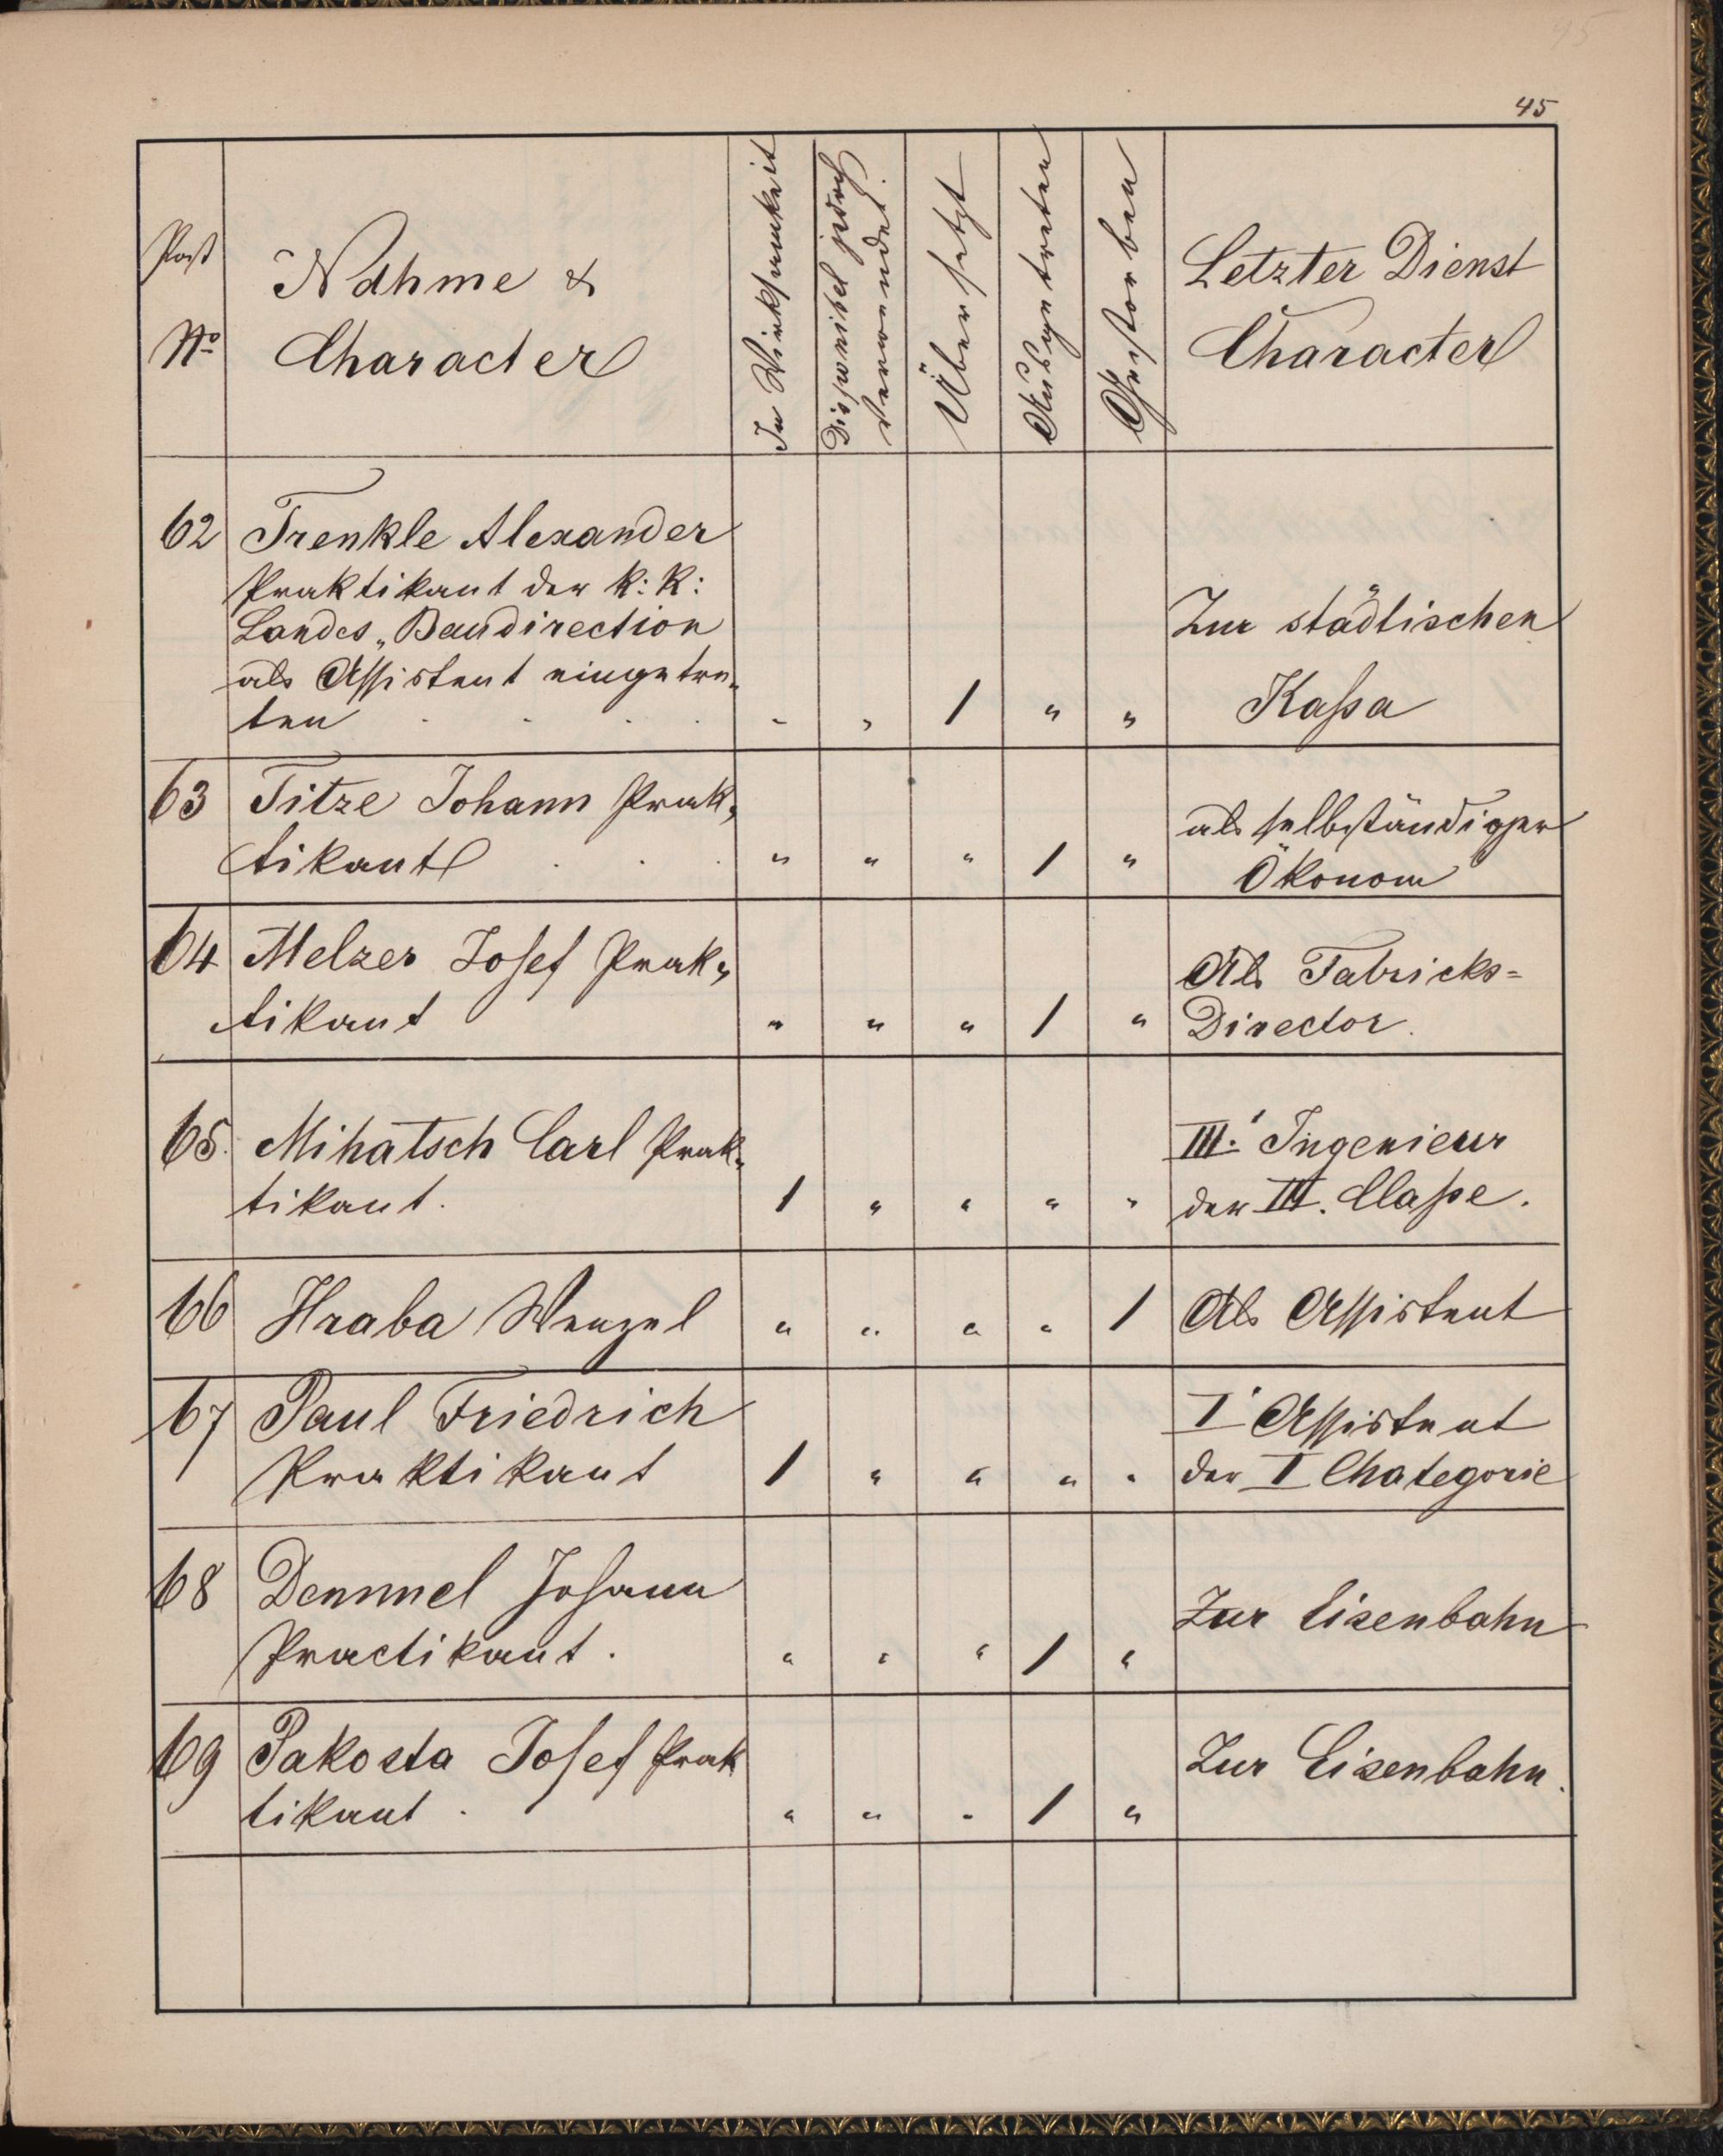 45
Post
No
Nahme &
Character
In Wirksamkeit
Disponibel jedoch
verwendet.
Übersetzt
Ausgetreten
Gestorben
Letzter Dienst
Character
62 Trenkle Alexander
Praktikant der k: k:
Landes„Baudirection
als Assistent eingetre„
ten . . . . - „ 1 „ „
Zur städtischen
Kassa
63 Titze Johann Prak„
tikant . . . „ „ „ 1 „
als selbständiger
Ökonom
64 Melzer Josef Prak„
tikant „ „ „ 1 „
Als Fabricks=
Director.
65. Mihatsch Carl Prak„
tikant. 1 „ „ „ „
III. Ingenieur
der III. Classe.
66 Hraba Wenzel „ „ „ „ 1 Als Assistent
67 Paul Friedrich
Praktikant 1 „ „ „ „
I Assistent
der I Chategorie
68 Demmel Johann
Practikant. „ „ „ 1 „
Zur Eisenbahn
69 Pakosta Josef Prak
tikant. „ „ „ 1 „
Zur Eisenbahn.